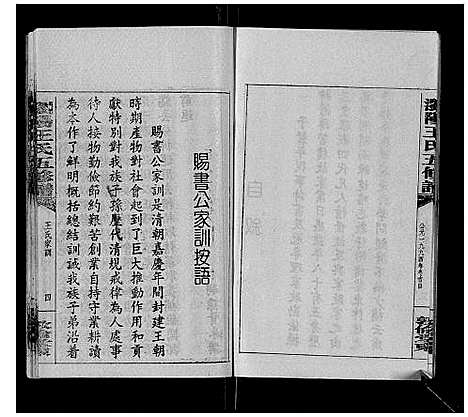 瀏陽王氏五修譜
「賜書公家訓按語
賜書公家訓是清朝嘉慶年間封建王朝
時期產物對社會起到了巨大推動作用和貢
獻特別對我族子孫歷代清規戒律為人處事
待人接物勤儉節約艱苦創業自持守業耕讀
為本作了鮮明概括總結訓誡我族子弟沿着
瀏陽王氏五修譜
王氏家訓
四